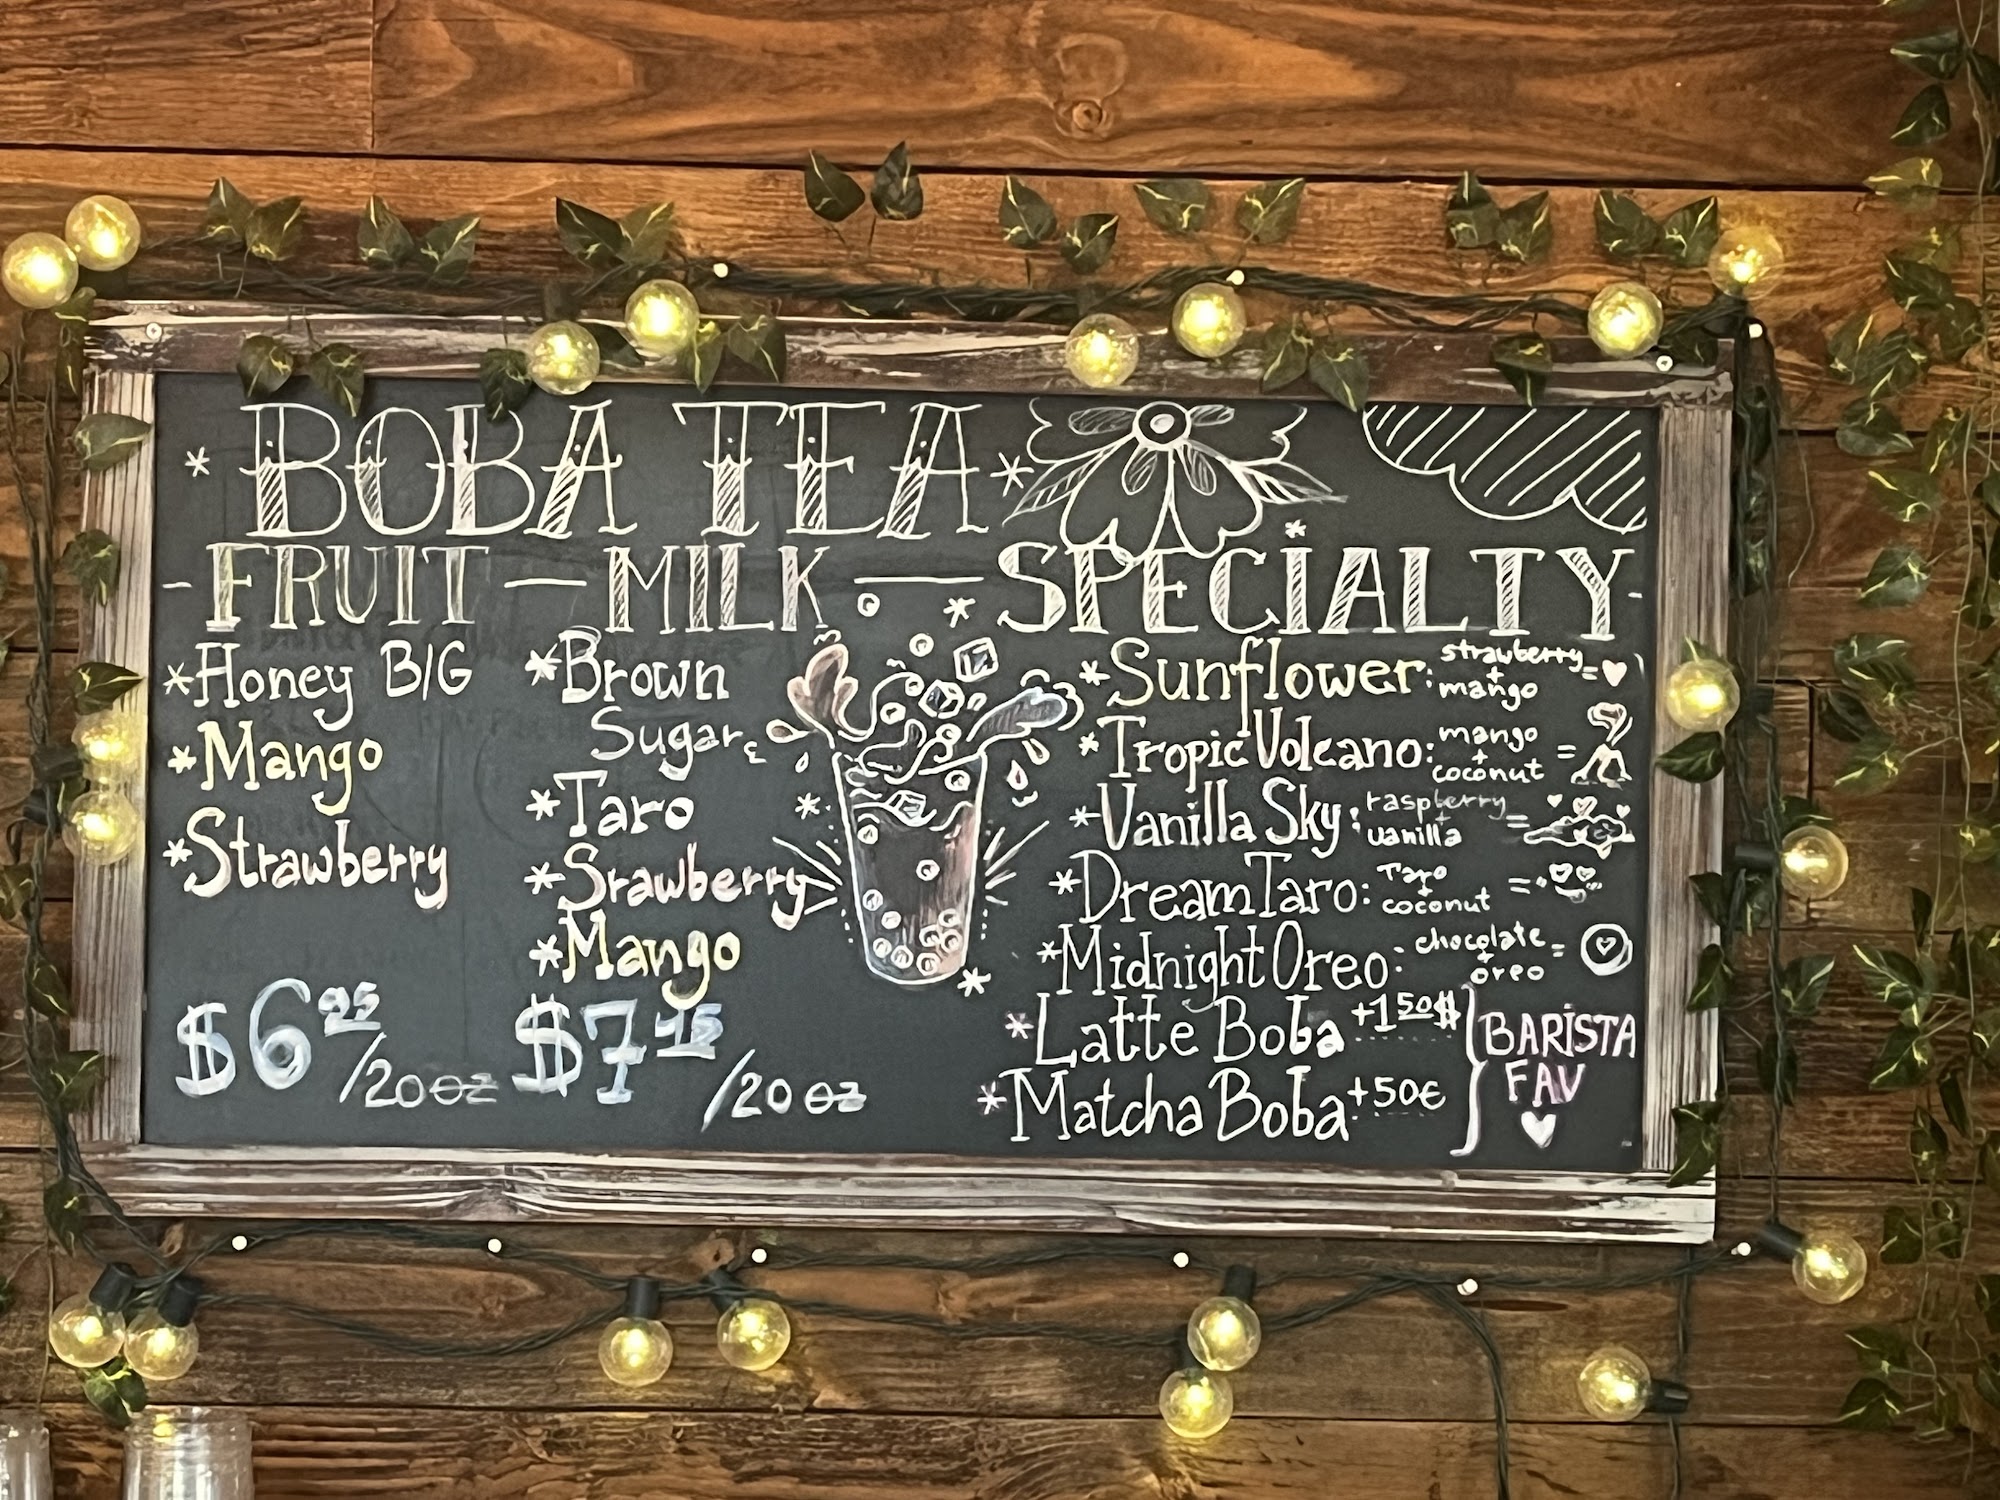 * BOBA TEA *
- FRUIT - MILK - SPECIALTY -
* Honey B/G
* Mango
* Strawberry
$6.95 /20 oz
* Brown
Sugar
* Taro
* Srawberry
* Mango
/20 oz
* Sunflower: strawberry + mango =
* Tropic Volcano: mango + coconut =
* Vanilla Sky: raspberry + vanilla =
* Dream Taro: Taro + coconut =
* Midnight Oreo: chocolate + oreo =
* Latte Boba +1 50$
* Matcha Boba +50¢
BARISTA
FAV